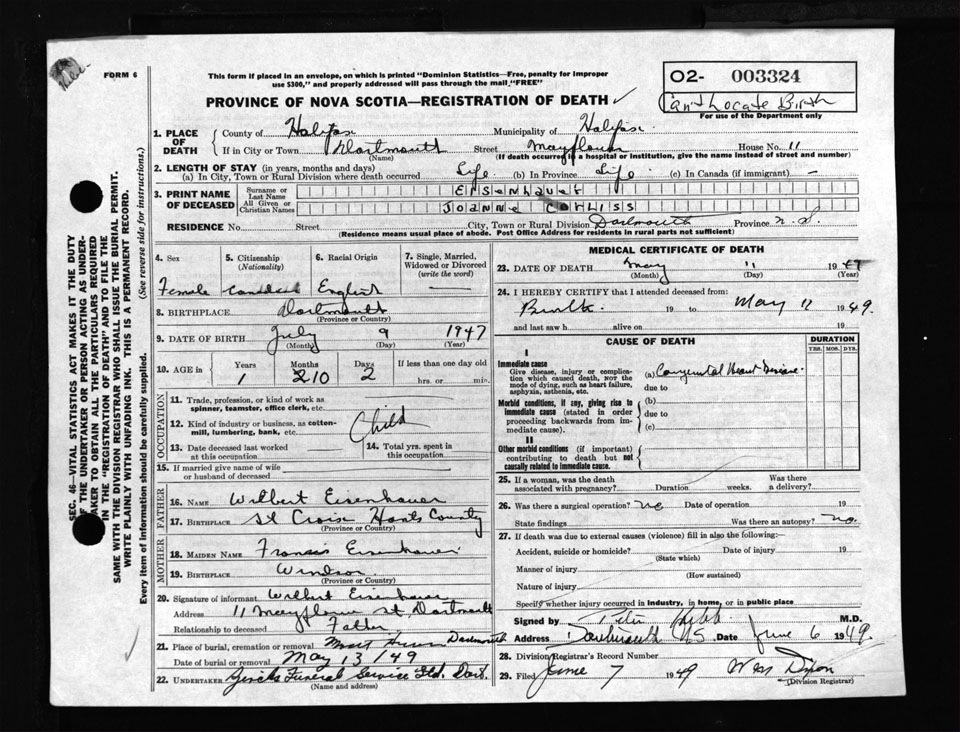 FORM 6
This form if placed in an envelope, on which is printed "Dominion Statistics—Free, penalty for improper
use $300," and properly addressed will pass through the mail "FREE"
PROVINCE OF NOVA SCOTIA—REGISTRATION OF DEATH ✓
O2- 003324
Can't Locate Birth
For use of the Department only
SEC. 46—VITAL STATISTICS ACT MAKES IT THE DUTY
OF THE UNDERTAKER OR PERSON ACTING AS UNDER-
TAKER TO OBTAIN ALL THE PARTICULARS REQUIRED
IN THE "REGISTRATION OF DEATH" AND TO FILE THE
SAME WITH THE DIVISION REGISTRAR WHO SHALL ISSUE THE BURIAL PERMIT.
WRITE PLAINLY WITH UNFADING INK. THIS IS A PERMANENT RECORD.
Every item of information should be carefully supplied. (See reverse side for instructions.)
1. PLACE OF DEATH County of Halifax Municipality of Halifax
If in City or Town Dartmouth Street Mayflower House No. 11
(Name) (If death occurred in a hospital or institution, give the name instead of street and number)
2. LENGTH OF STAY (in years, months and days)
(a) In City, Town or Rural Division where death occurred Life (b) In Province Life (c) In Canada (if immigrant) —
3. PRINT NAME OF DECEASED Surname or Last Name Eisenhauer
All Given or Christian Names Joanne Corliss
RESIDENCE No. Street City, Town or Rural Division Dartmouth Province N.S.
(Residence means usual place of abode. Post Office Address for residents in rural parts not sufficient)
4. Sex 5. Citizenship (Nationality) 6. Racial Origin 7. Single, Married, Widowed or Divorced (write the word)
Female English —
8. BIRTHPLACE Dartmouth
(Province or Country)
9. DATE OF BIRTH July 9 1947
(Month) (Day) (Year)
10. AGE in Years Months Days If less than one day old
1 10 2 hrs. or min.
OCCUPATION
11. Trade, profession, or kind of work as spinner, teamster, office clerk, etc.
12. Kind of industry or business, as cotton-mill, lumbering, bank, etc. Child
13. Date deceased last worked at this occupation 14. Total yrs. spent in this occupation
15. If married give name of wife or husband of deceased
FATHER
16. NAME Wilbert Eisenhauer
17. BIRTHPLACE St Croix Hants County
(Province or Country)
MOTHER
18. MAIDEN NAME Francis Eisenhauer
19. BIRTHPLACE Windsor
(Province or Country)
20. Signature of informant Wilbert Eisenhauer
Address 11 Mayflower St. Dartmouth
Relationship to deceased Father
21. Place of burial, cremation or removal Dartmouth
Date of burial or removal May 13/49
22. UNDERTAKER Funeral Service Ltd. Dart.
(Name and address)
MEDICAL CERTIFICATE OF DEATH
23. DATE OF DEATH May 11 19
(Month) (Day) (Year)
24. I HEREBY CERTIFY that I attended deceased from:
19 to May 11 1949.
and last saw h alive on 19
CAUSE OF DEATH DURATION
YRS. MOS. DYS.
I
Immediate cause
Give disease, injury or complication which caused death, NOT the mode of dying, such as heart failure, asphyxia, asthenia, etc.
(a) Congenital Heart Disease
due to
Morbid conditions, if any, giving rise to immediate cause (stated in order proceeding backwards from immediate cause).
(b)
due to
(c)
II
Other morbid conditions (if important) contributing to death but not causally related to immediate cause.
25. If a woman, was the death associated with pregnancy? Duration weeks. Was there a delivery?
26. Was there a surgical operation? no Date of operation 19
State findings Was there an autopsy? no.
27. If death was due to external causes (violence) fill in also the following:
Accident, suicide or homicide? Date of injury 19
(State which)
Manner of injury
(How sustained)
Nature of injury
Specify whether injury occurred in industry, in home, or in public place
Signed by M.D.
Address Dartmouth NS Date June 6 1949.
28. Division Registrar's Record Number
29. Filed June 7 1949
(Division Registrar)